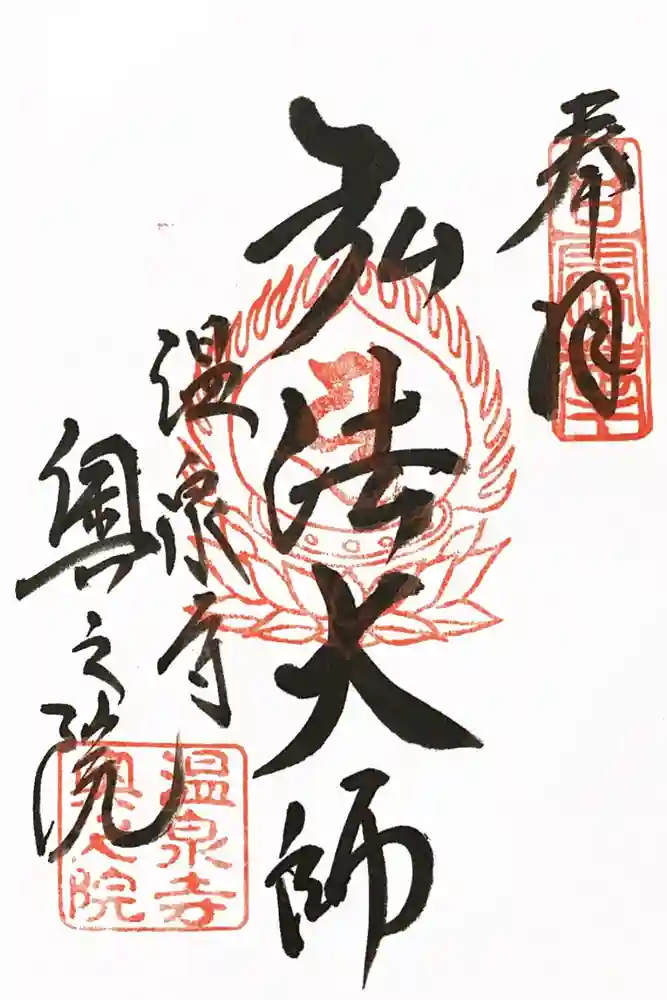 奉
弘法大師
温泉寺
奥之院
温泉寺
奥之院